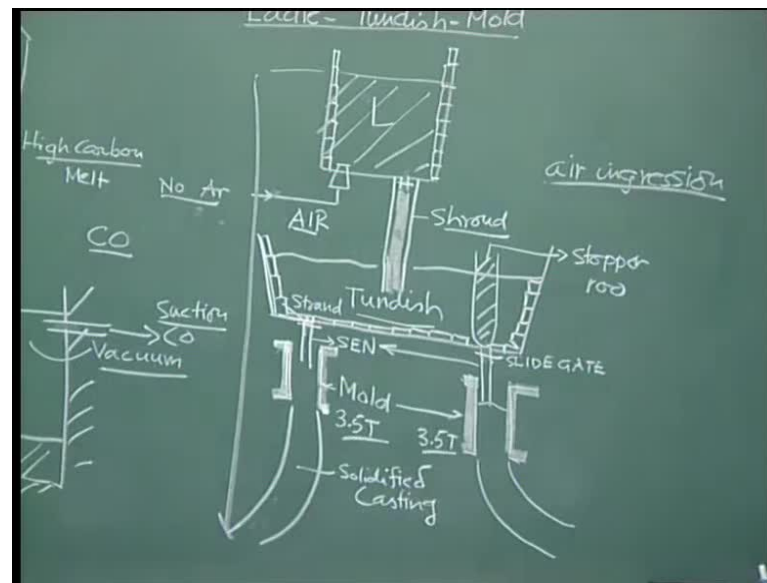 Ladle - Tundish - Mold
High Carbon
Melt
No Ar
AIR
L
Shroud
air ingression
CO
Stopper
rod
Suction
CO
Vacuum
Strand
Tundish
SEN
SLIDE GATE
Mold
3.5T
3.5T
Solidified
Casting